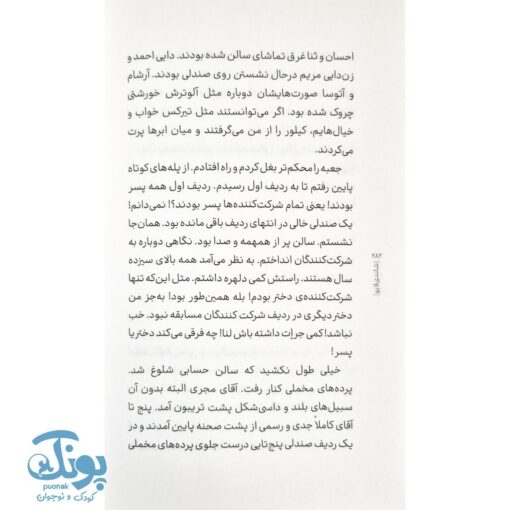 احسان و ثنا غرق تماشای سالن شده بودند. دایی احمد و
زن‌دایی مریم درحال نشستن روی صندلی بودند. آرشام
و آتوسا صورت‌هایشان دوباره مثل آلوترش خورشتی
چروک شده بود. اگر می‌توانستند مثل تیرکس خواب و
خیال‌هایم، کیلور را از من می‌گرفتند و میان ابرها پرت
می‌کردند.
جعبه را محکم‌تر بغل کردم و راه افتادم. از پله‌های کوتاه
پایین رفتم تا به ردیف اول رسیدم. ردیف اول همه پسر
بودند! یعنی تمام شرکت‌کننده‌ها پسر بودند؟! نمی‌دانم!
یک صندلی خالی در انتهای ردیف باقی مانده بود. همان‌جا
نشستم. سالن پر از همهمه و صدا بود. نگاهی دوباره به
شرکت‌کنندگان انداختم. به نظر می‌آمد همه بالای سیزده
سال هستند. راستش کمی دلهره داشتم. مثل این‌که تنها
شرکت‌کننده‌ی دختر بودم! بله همین‌طور بود! به‌جز من
دختر دیگری در ردیف شرکت کنندگان مسابقه نبود. خب
نباشد! کمی جرات داشته باش لنا! چه فرقی می‌کند دختر یا
پسر!
خیلی طول نکشید که سالن حسابی شلوغ شد.
پرده‌های مخملی کنار رفت. آقای مجری البته بدون آن
سبیل‌های بلند و داسی‌شکل پشت تریبون آمد. پنج تا
آقای کاملاً جدی و رسمی از پشت صحنه پایین آمدند و در
یک ردیف صندلی پنج‌تایی درست جلوی پرده‌های مخملی
۲۸۴
پونک
puonak
کودک و نوجوان